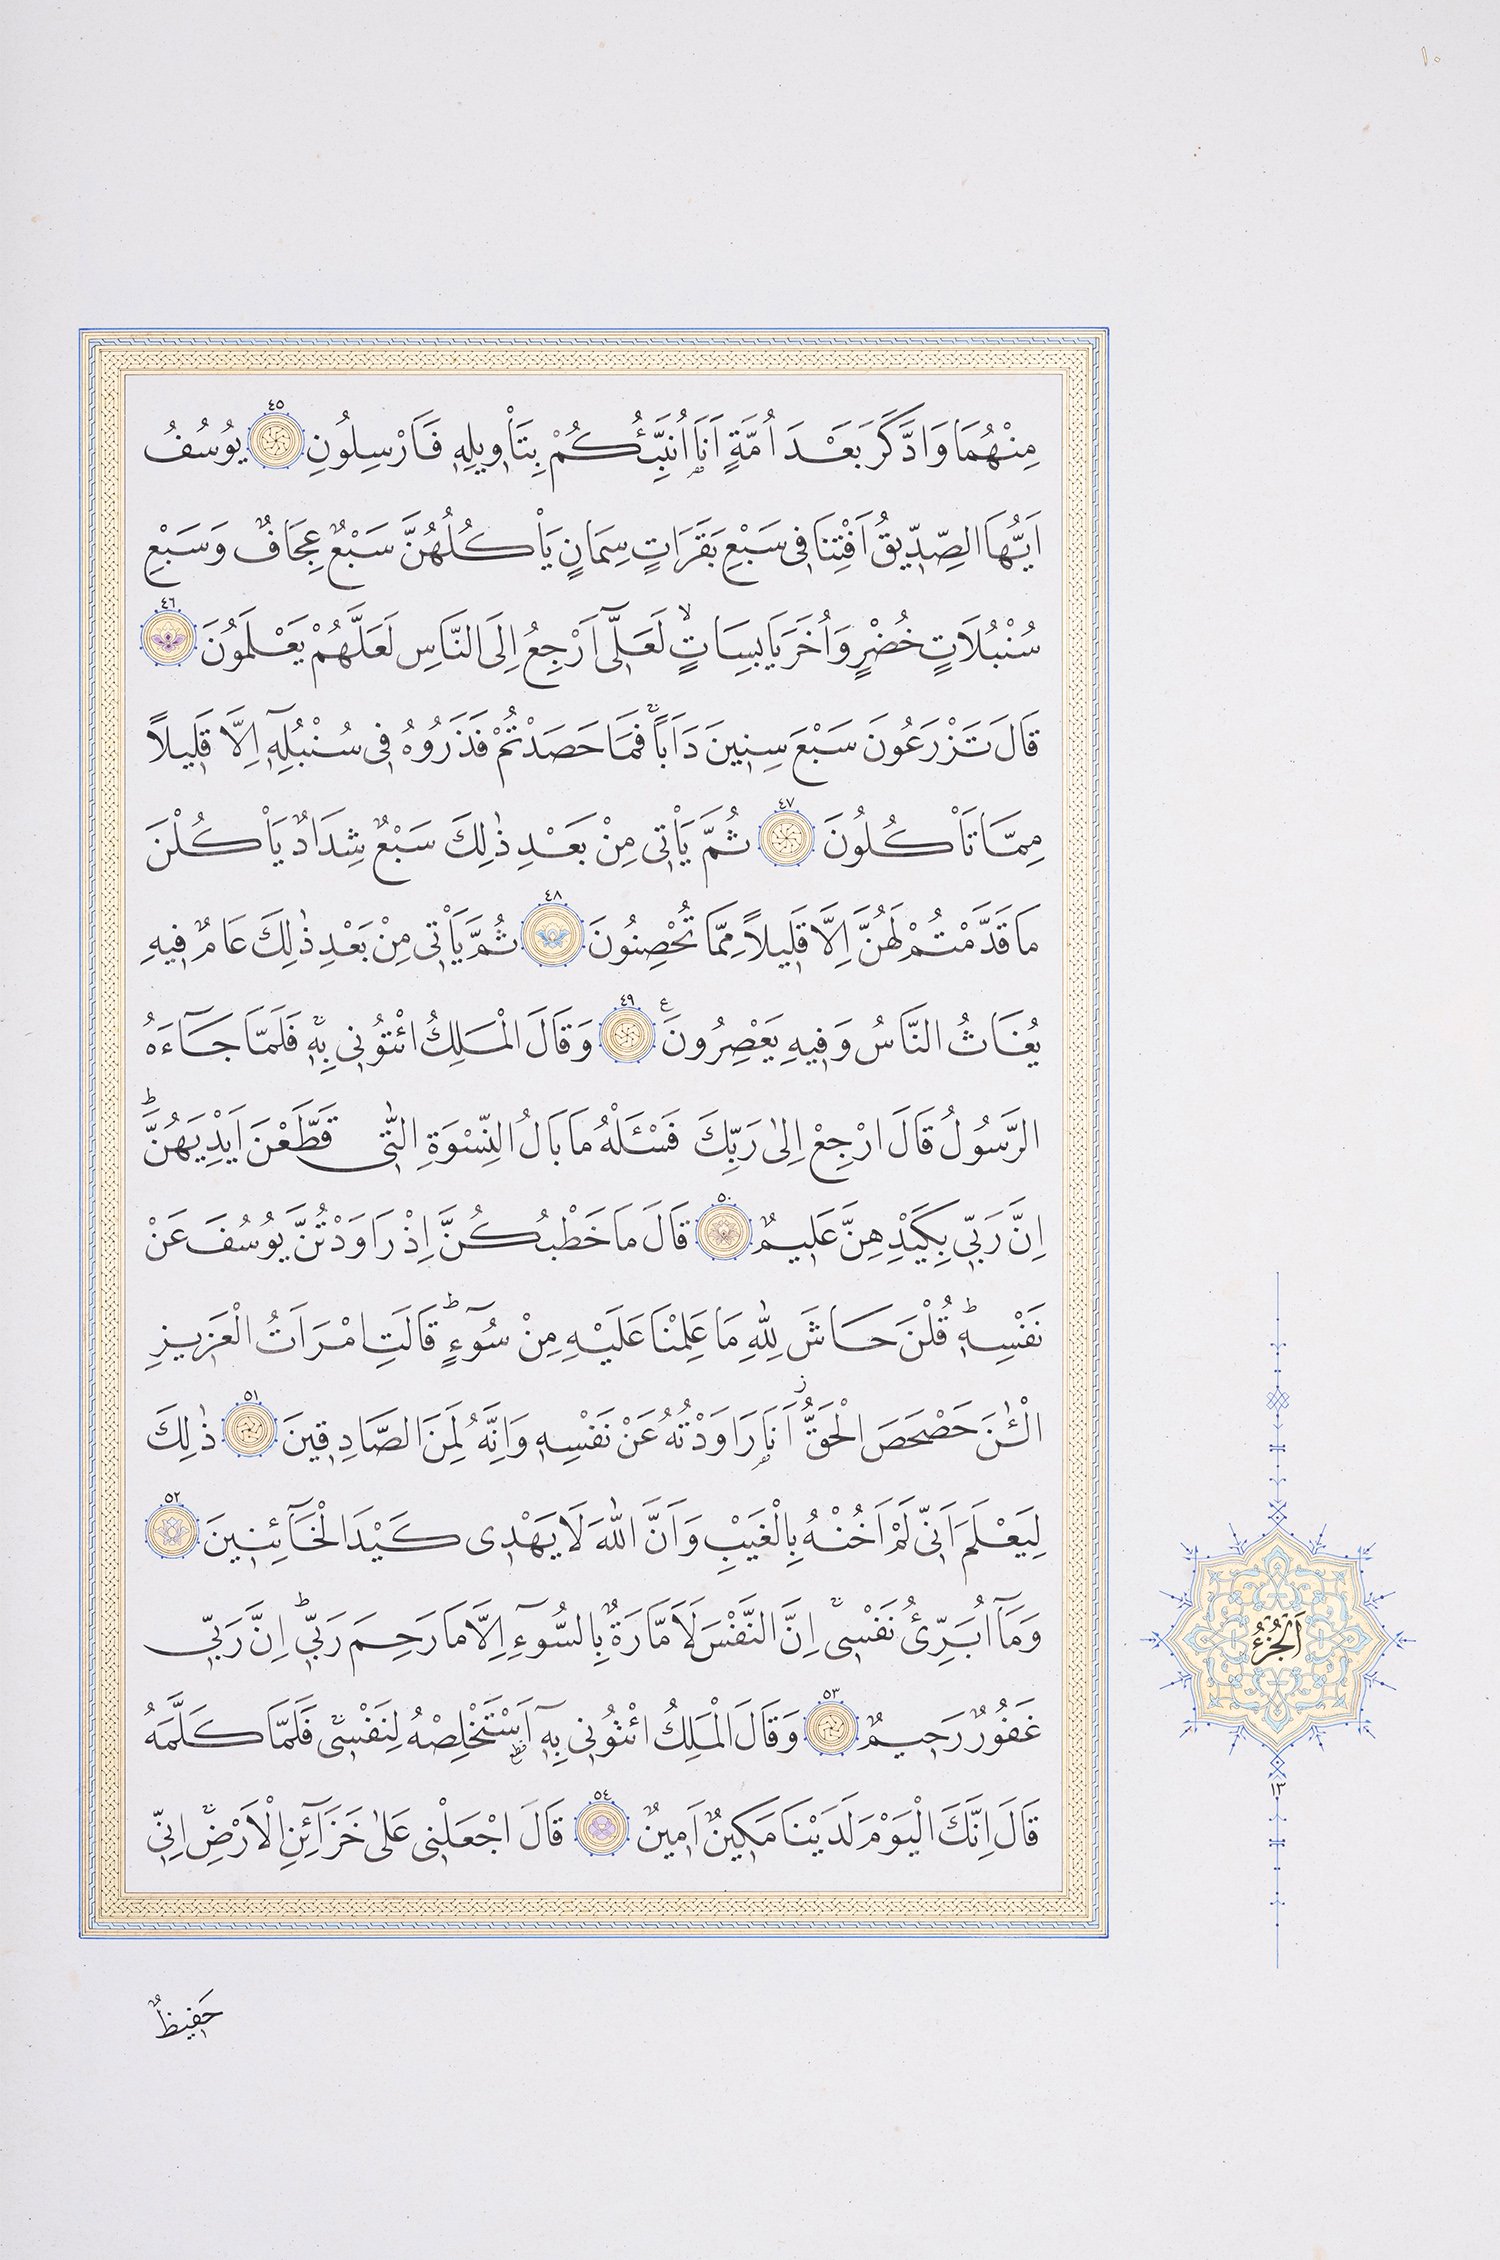 ١٠
مِنْهُمَا وَادَّكَرَ بَعْدَ اُمَّةٍ اَنَا۬ اُنَبِّئُكُمْ بِتَأْو۪يلِه۪ فَاَرْسِلُونِ ٤٥ يُوسُفُ
اَيُّهَا الصِّدّ۪يقُ اَفْتِنَا ف۪ي سَبْعِ بَقَرَاتٍ سِمَانٍ يَأْكُلُهُنَّ سَبْعٌ عِجَافٌ وَسَبْعِ
سُنْبُلَاتٍ خُضْرٍ وَاُخَرَ يَابِسَاتٍۙ لَعَلّ۪ٓي اَرْجِعُ اِلَى النَّاسِ لَعَلَّهُمْ يَعْلَمُونَ ٤٦
قَالَ تَزْرَعُونَ سَبْعَ سِن۪ينَ دَاَباًۚ فَمَا حَصَدْتُمْ فَذَرُوهُ ف۪ي سُنْبُلِه۪ٓ اِلَّا قَل۪يلاً
مِمَّا تَأْكُلُونَ ٤٧ ثُمَّ يَأْت۪ي مِنْ بَعْدِ ذٰلِكَ سَبْعٌ شِدَادٌ يَأْكُلْنَ
مَا قَدَّمْتُمْ لَهُنَّ اِلَّا قَل۪يلاً مِمَّا تُحْصِنُونَ ٤٨ ثُمَّ يَأْت۪ي مِنْ بَعْدِ ذٰلِكَ عَامٌ ف۪يهِ
يُغَاثُ النَّاسُ وَف۪يهِ يَعْصِرُونَ ع ٤٩ وَقَالَ الْمَلِكُ ائْتُون۪ي بِه۪ۚ فَلَمَّا جَٓاءَهُ
الرَّسُولُ قَالَ ارْجِعْ اِلٰى رَبِّكَ فَسْـَٔلْهُ مَا بَالُ النِّسْوَةِ الّٰت۪ي قَطَّعْنَ اَيْدِيَهُنَّۜ
اِنَّ رَبّ۪ي بِكَيْدِهِنَّ عَل۪يمٌ ٥٠ قَالَ مَا خَطْبُكُنَّ اِذْ رَاوَدْتُنَّ يُوسُفَ عَنْ
نَفْسِه۪ۜ قُلْنَ حَاشَ لِلّٰهِ مَا عَلِمْنَا عَلَيْهِ مِنْ سُٓوءٍۜ قَالَتِ امْرَاَتُ الْعَز۪يزِ
الْـٰٔنَ حَصْحَصَ الْحَقُّۘ اَنَا۬ رَاوَدْتُهُ عَنْ نَفْسِه۪ وَاِنَّهُ لَمِنَ الصَّادِق۪ينَ ٥١ ذٰلِكَ
لِيَعْلَمَ اَنّ۪ي لَمْ اَخُنْهُ بِالْغَيْبِ وَاَنَّ اللّٰهَ لَا يَهْد۪ي كَيْدَ الْخَٓائِن۪ينَ ٥٢
وَمَٓا اُبَرِّئُ نَفْس۪يۚ اِنَّ النَّفْسَ لَاَمَّارَةٌ بِالسُّٓوءِ اِلَّا مَا رَحِمَ رَبّ۪يۜ اِنَّ رَبّ۪ي
غَفُورٌ رَح۪يمٌ ٥٣ وَقَالَ الْمَلِكُ ائْتُون۪ي بِه۪ٓ اَسْتَخْلِصْهُ لِنَفْس۪يۚ فَلَمَّا كَلَّمَهُ
قَالَ اِنَّكَ الْيَوْمَ لَدَيْنَا مَك۪ينٌ اَم۪ينٌ ٥٤ قَالَ اجْعَلْن۪ي عَلٰى خَزَٓائِنِ الْاَرْضِۚ اِنّ۪ي
حَف۪يظٌ
اَلْجُزْءُ
١٣